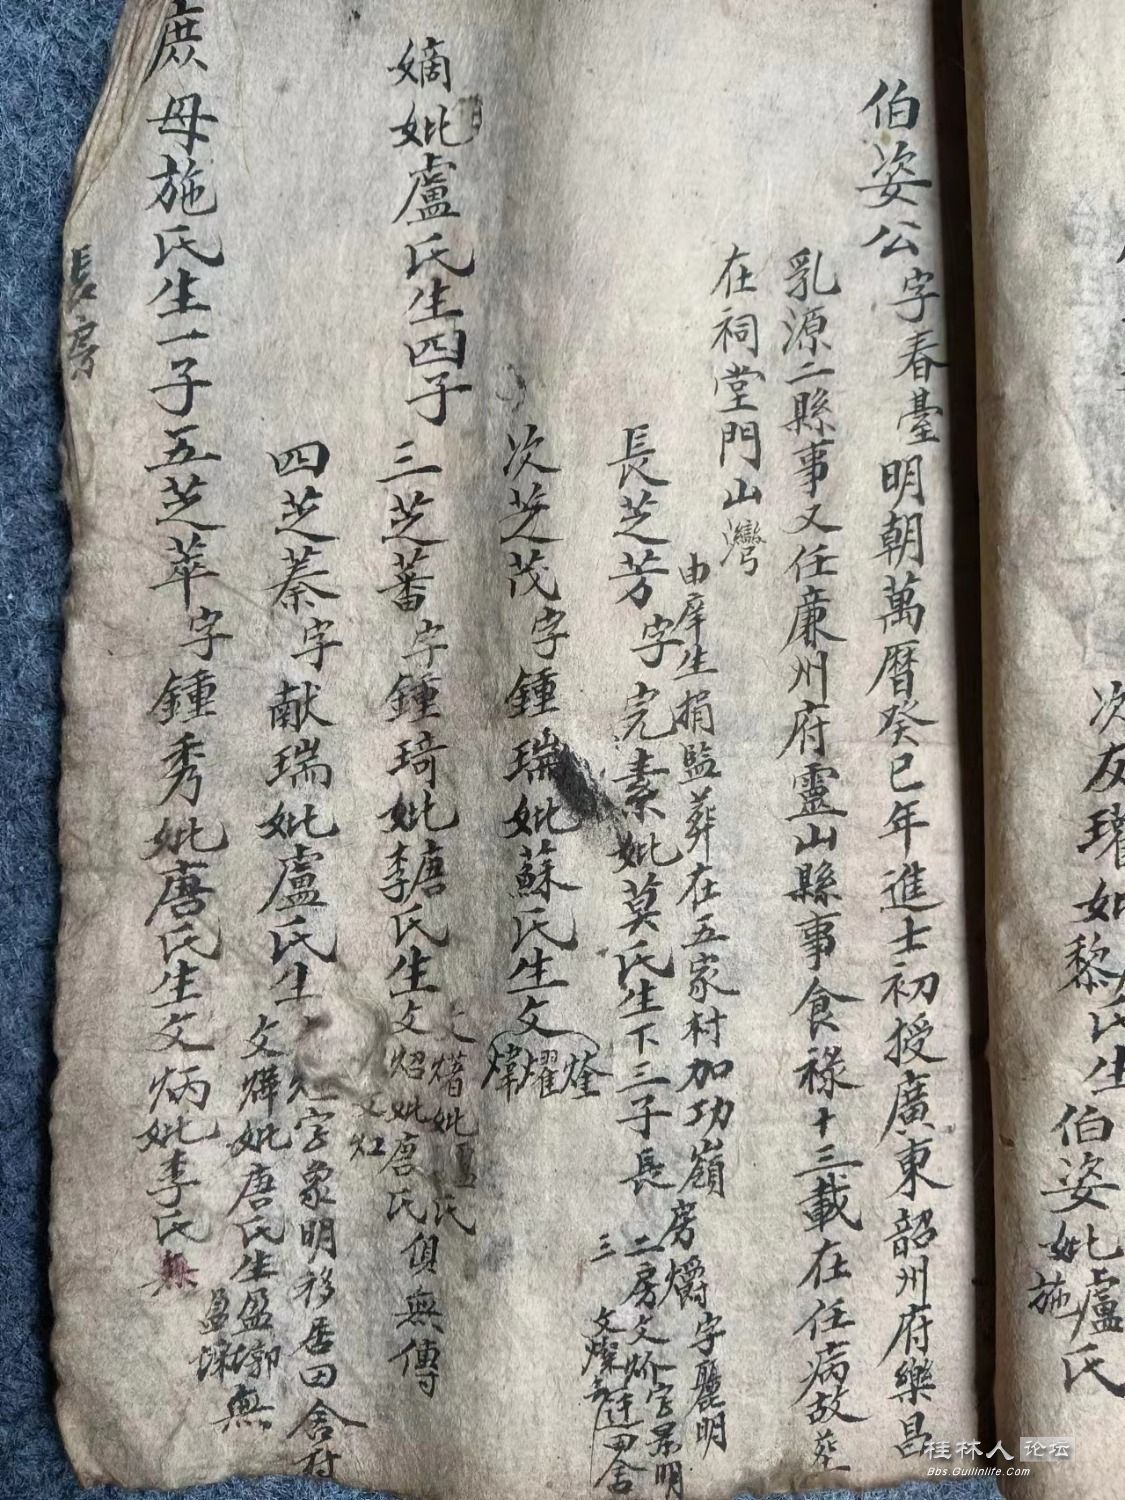 次友
妣黎氏生
伯姿妣盧氏
施
伯姿公字春臺明朝萬曆癸巳年進士初授廣東韶州府樂昌
乳源二縣事又任廉州府靈山縣事食祿十三載在任病故葬
在祠堂門山灣
由庠生捐監葬在五家村加功嶺
長芝芳字完素妣莫氏生下三子長房文爝字麗明
二房文炌字景明
三文燦
田舍
次芝茂字鍾瑞妣蘇氏生文
烇
燿
煒
嫡妣盧氏生四子
三芝蕃字鍾琦妣李唐氏生文炤妣唐氏俱無傳
妣盧氏
文灴
四芝蓁字献瑞妣盧氏生
字象明移居田舍村
文燁妣唐氏生盈墎無
盈琛
庶母施氏生一子五芝萃字鍾秀妣唐氏生文炳妣李氏無
長房
桂林人论坛
Bbs.Guilinlife.Com